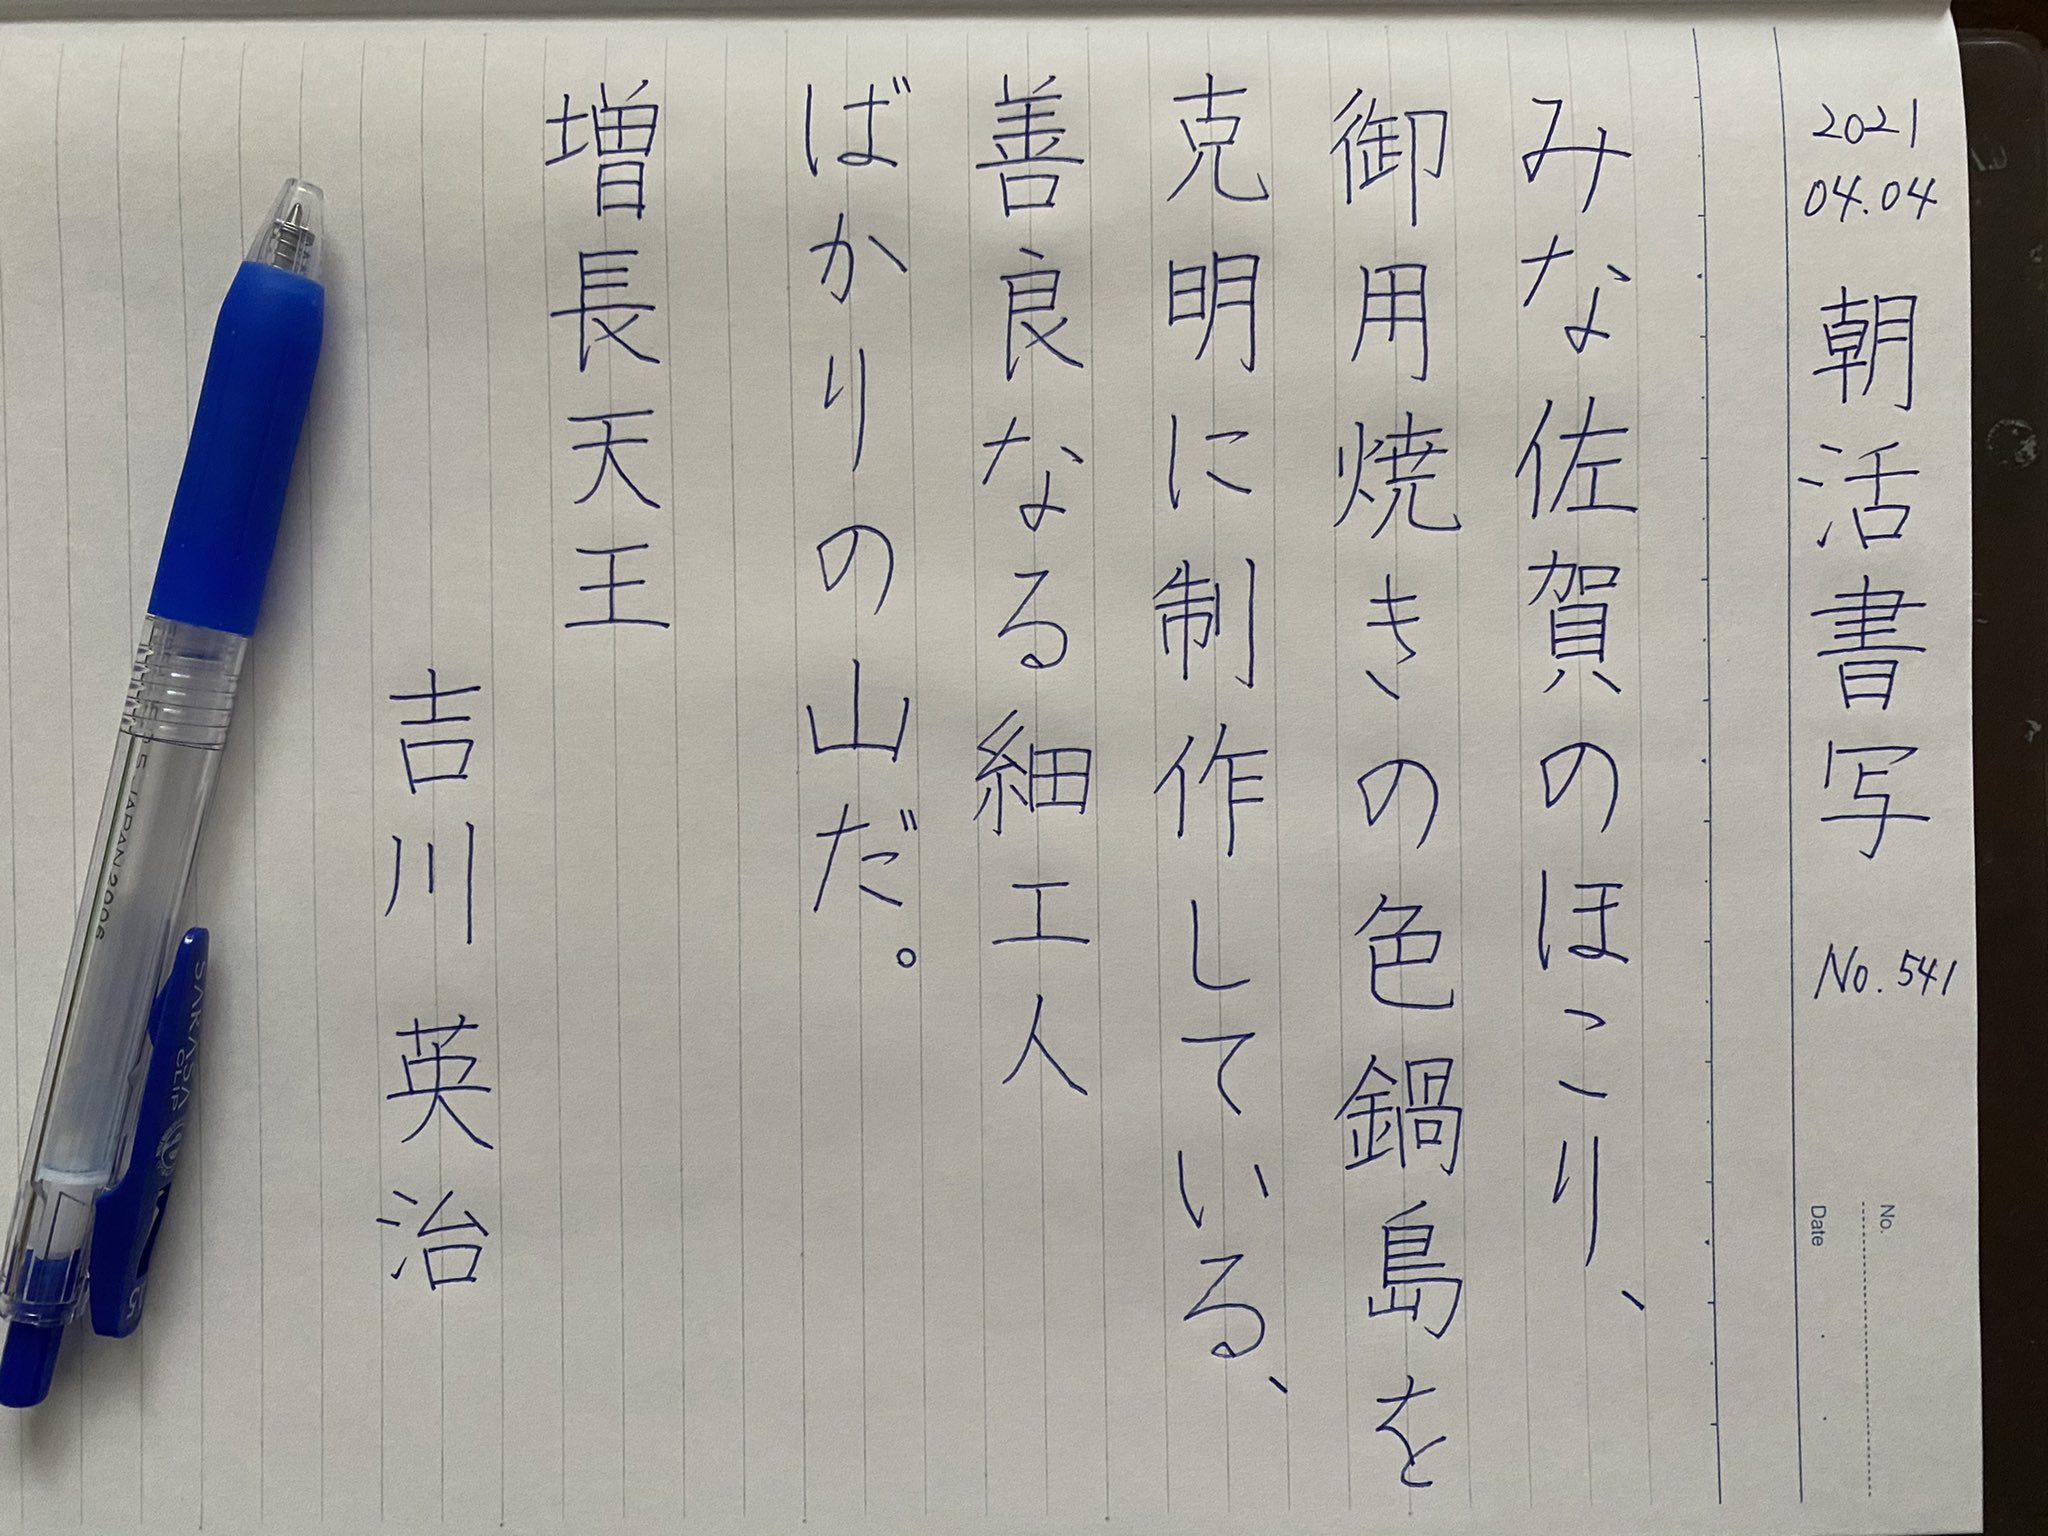 2021
04.04
朝活書写 No.541
No.
Date
みな佐賀のほこり、
御用焼きの色鍋島を
克明に制作している、
善良なる細工人
ばかりの山だ。
増長天王
吉川英治
JAPAN2006
SAKASA
CLIP